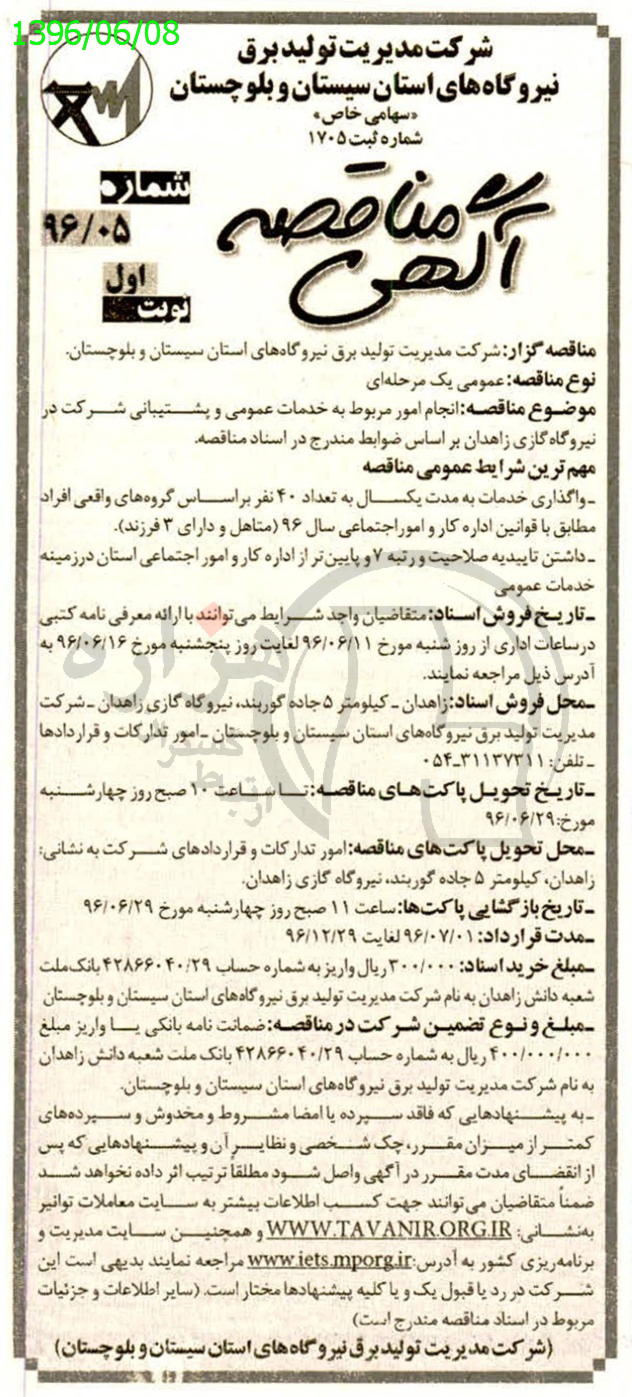 1396/06/08
شرکت مدیریت تولید برق
نیروگاه های استان سیستان و بلوچستان
«سهامی خاص»
شماره ثبت ۱۷۰۵
آگهی مناقصه
شماره
۹۶/۰۵
نوبت اول
مناقصه گزار: شرکت مدیریت تولید برق نیروگاه‌های استان سیستان و بلوچستان.
نوع مناقصه: عمومی یک مرحله‌ای
موضوع مناقصه: انجام امور مربوط به خدمات عمومی و پشتیبانی شرکت در
نیروگاه گازی زاهدان بر اساس ضوابط مندرج در اسناد مناقصه.
مهم ترین شرایط عمومی مناقصه
ـ واگذاری خدمات به مدت یکسال به تعداد ۴۰ نفر براساس گروه‌های واقعی افراد
مطابق با قوانین اداره کار و امور اجتماعی سال ۹۶ (متاهل و دارای ۳ فرزند).
ـ داشتن تاییدیه صلاحیت و رتبه ۷ و پایین‌تر از اداره کار و امور اجتماعی استان درزمینه
خدمات عمومی
ـ تاریخ فروش اسناد: متقاضیان واجد شرایط می‌توانند با ارائه معرفی نامه کتبی
درساعات اداری از روز شنبه مورخ ۹۶/۰۶/۱۱ لغایت روز پنجشنبه مورخ ۹۶/۰۶/۱۶ به
آدرس ذیل مراجعه نمایند.
ـ محل فروش اسناد: زاهدان ـ کیلومتر ۵ جاده گوربند، نیروگاه گازی زاهدان ـ شرکت
مدیریت تولید برق نیروگاه‌های استان سیستان و بلوچستان ـ امور تدارکات و قراردادها
ـ تلفن: ۳۱۱۳۷۳۱۱-۰۵۴
ـ تاریخ تحویل پاکت‌های مناقصه: تا ساعت ۱۰ صبح روز چهارشنبه
مورخ: ۹۶/۰۶/۲۹
ـ محل تحویل پاکت‌های مناقصه: امور تدارکات و قراردادهای شرکت به نشانی:
زاهدان، کیلومتر ۵ جاده گوربند، نیروگاه گازی زاهدان.
ـ تاریخ بازگشایی پاکت‌ها: ساعت ۱۱ صبح روز چهارشنبه مورخ ۹۶/۰۶/۲۹
ـ مدت قرارداد: ۹۶/۰۷/۰۱ لغایت ۹۶/۱۲/۲۹
ـ مبلغ خرید اسناد: ۳۰۰/۰۰۰ ریال واریز به شماره حساب ۴۲۸۶۶۰۴۰/۲۹ بانک ملت
شعبه دانش زاهدان به نام شرکت مدیریت تولید برق نیروگاه‌های استان سیستان و بلوچستان
ـ مبلغ و نوع تضمین شرکت در مناقصه: ضمانت نامه بانکی یا واریز مبلغ
۴۰۰/۰۰۰/۰۰۰ ریال به شماره حساب ۴۲۸۶۶۰۴۰/۲۹ بانک ملت شعبه دانش زاهدان
به نام شرکت مدیریت تولید برق نیروگاه‌های استان سیستان و بلوچستان.
ـ به پیشنهادهایی که فاقد سپرده یا امضا مشروط و مخدوش و سپرده‌های
کمتر از میزان مقرر، چک شخصی و نظایر آن و پیشنهادهایی که پس
از انقضای مدت مقرر در آگهی واصل شود مطلقاً ترتیب اثر داده نخواهد شد
ضمناً متقاضیان می‌توانند جهت کسب اطلاعات بیشتر به سایت معاملات توانیر
به نشانی: WWW.TAVANIR.ORG.IR و همچنین سایت مدیریت و
برنامه‌ریزی کشور به آدرس: www.iets.mporg.ir مراجعه نمایند بدیهی است این
شرکت در رد یا قبول یک و یا کلیه پیشنهادها مختار است. (سایر اطلاعات و جزئیات
مربوط در اسناد مناقصه مندرج است)
(شرکت مدیریت تولید برق نیروگاه های استان سیستان و بلوچستان)
هزاره